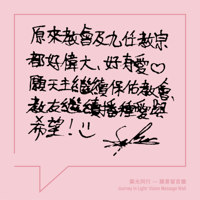 原來教會及九任教宗
都好偉大、好有愛♡
願天主繼續保佑教會,
教友繼續播種愛與
希望!
榮光同行 － 觀眾留言牆
Journey in Light: Visitor Message Wall